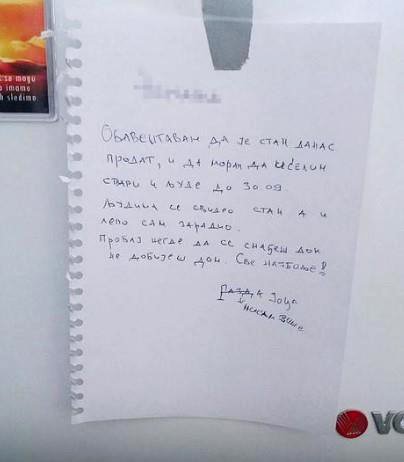 se mogu
imamo
sledimo.
ОБАВЕШТАВАМ ДА ЈЕ СТАН ДАНАС
ПРОДАТ, И ДА МОРАМ ДА ИСЕЛИМ
СТВАРИ И ЉУДЕ ДО 30.09.
ЉУДИМА СЕ СВИДЕО СТАН А И
ЛЕПО САМ ЗАРАДИО.
ПРОБАЈ НЕГДЕ ДА СЕ СНАЂЕШ ДОК
НЕ ДОБИЈЕШ ДОМ. СВЕ НАЈБОЉЕ!
ГАЗДА ЈОЦА
НИСАМ ВИШЕ
VO